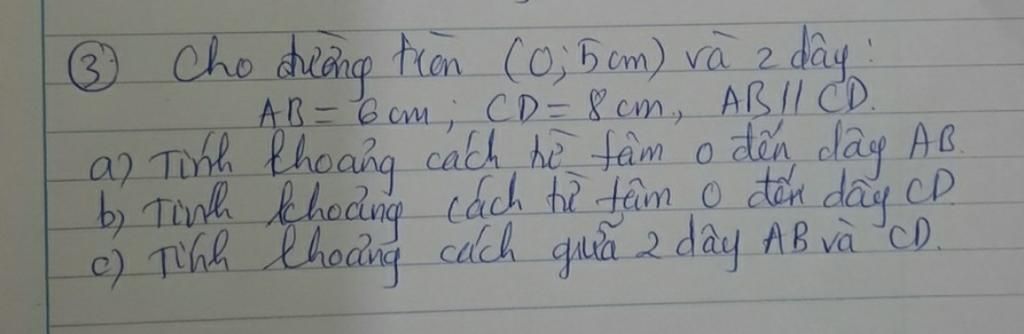 ③ Cho đường tròn (O; 5cm) và 2 dây:
AB = 6 cm; CD = 8 cm, AB // CD.
a) Tính khoảng cách từ tâm O đến dây AB.
b) Tính khoảng cách từ tâm O đến dây CD
c) Tính khoảng cách giữa 2 dây AB và CD.